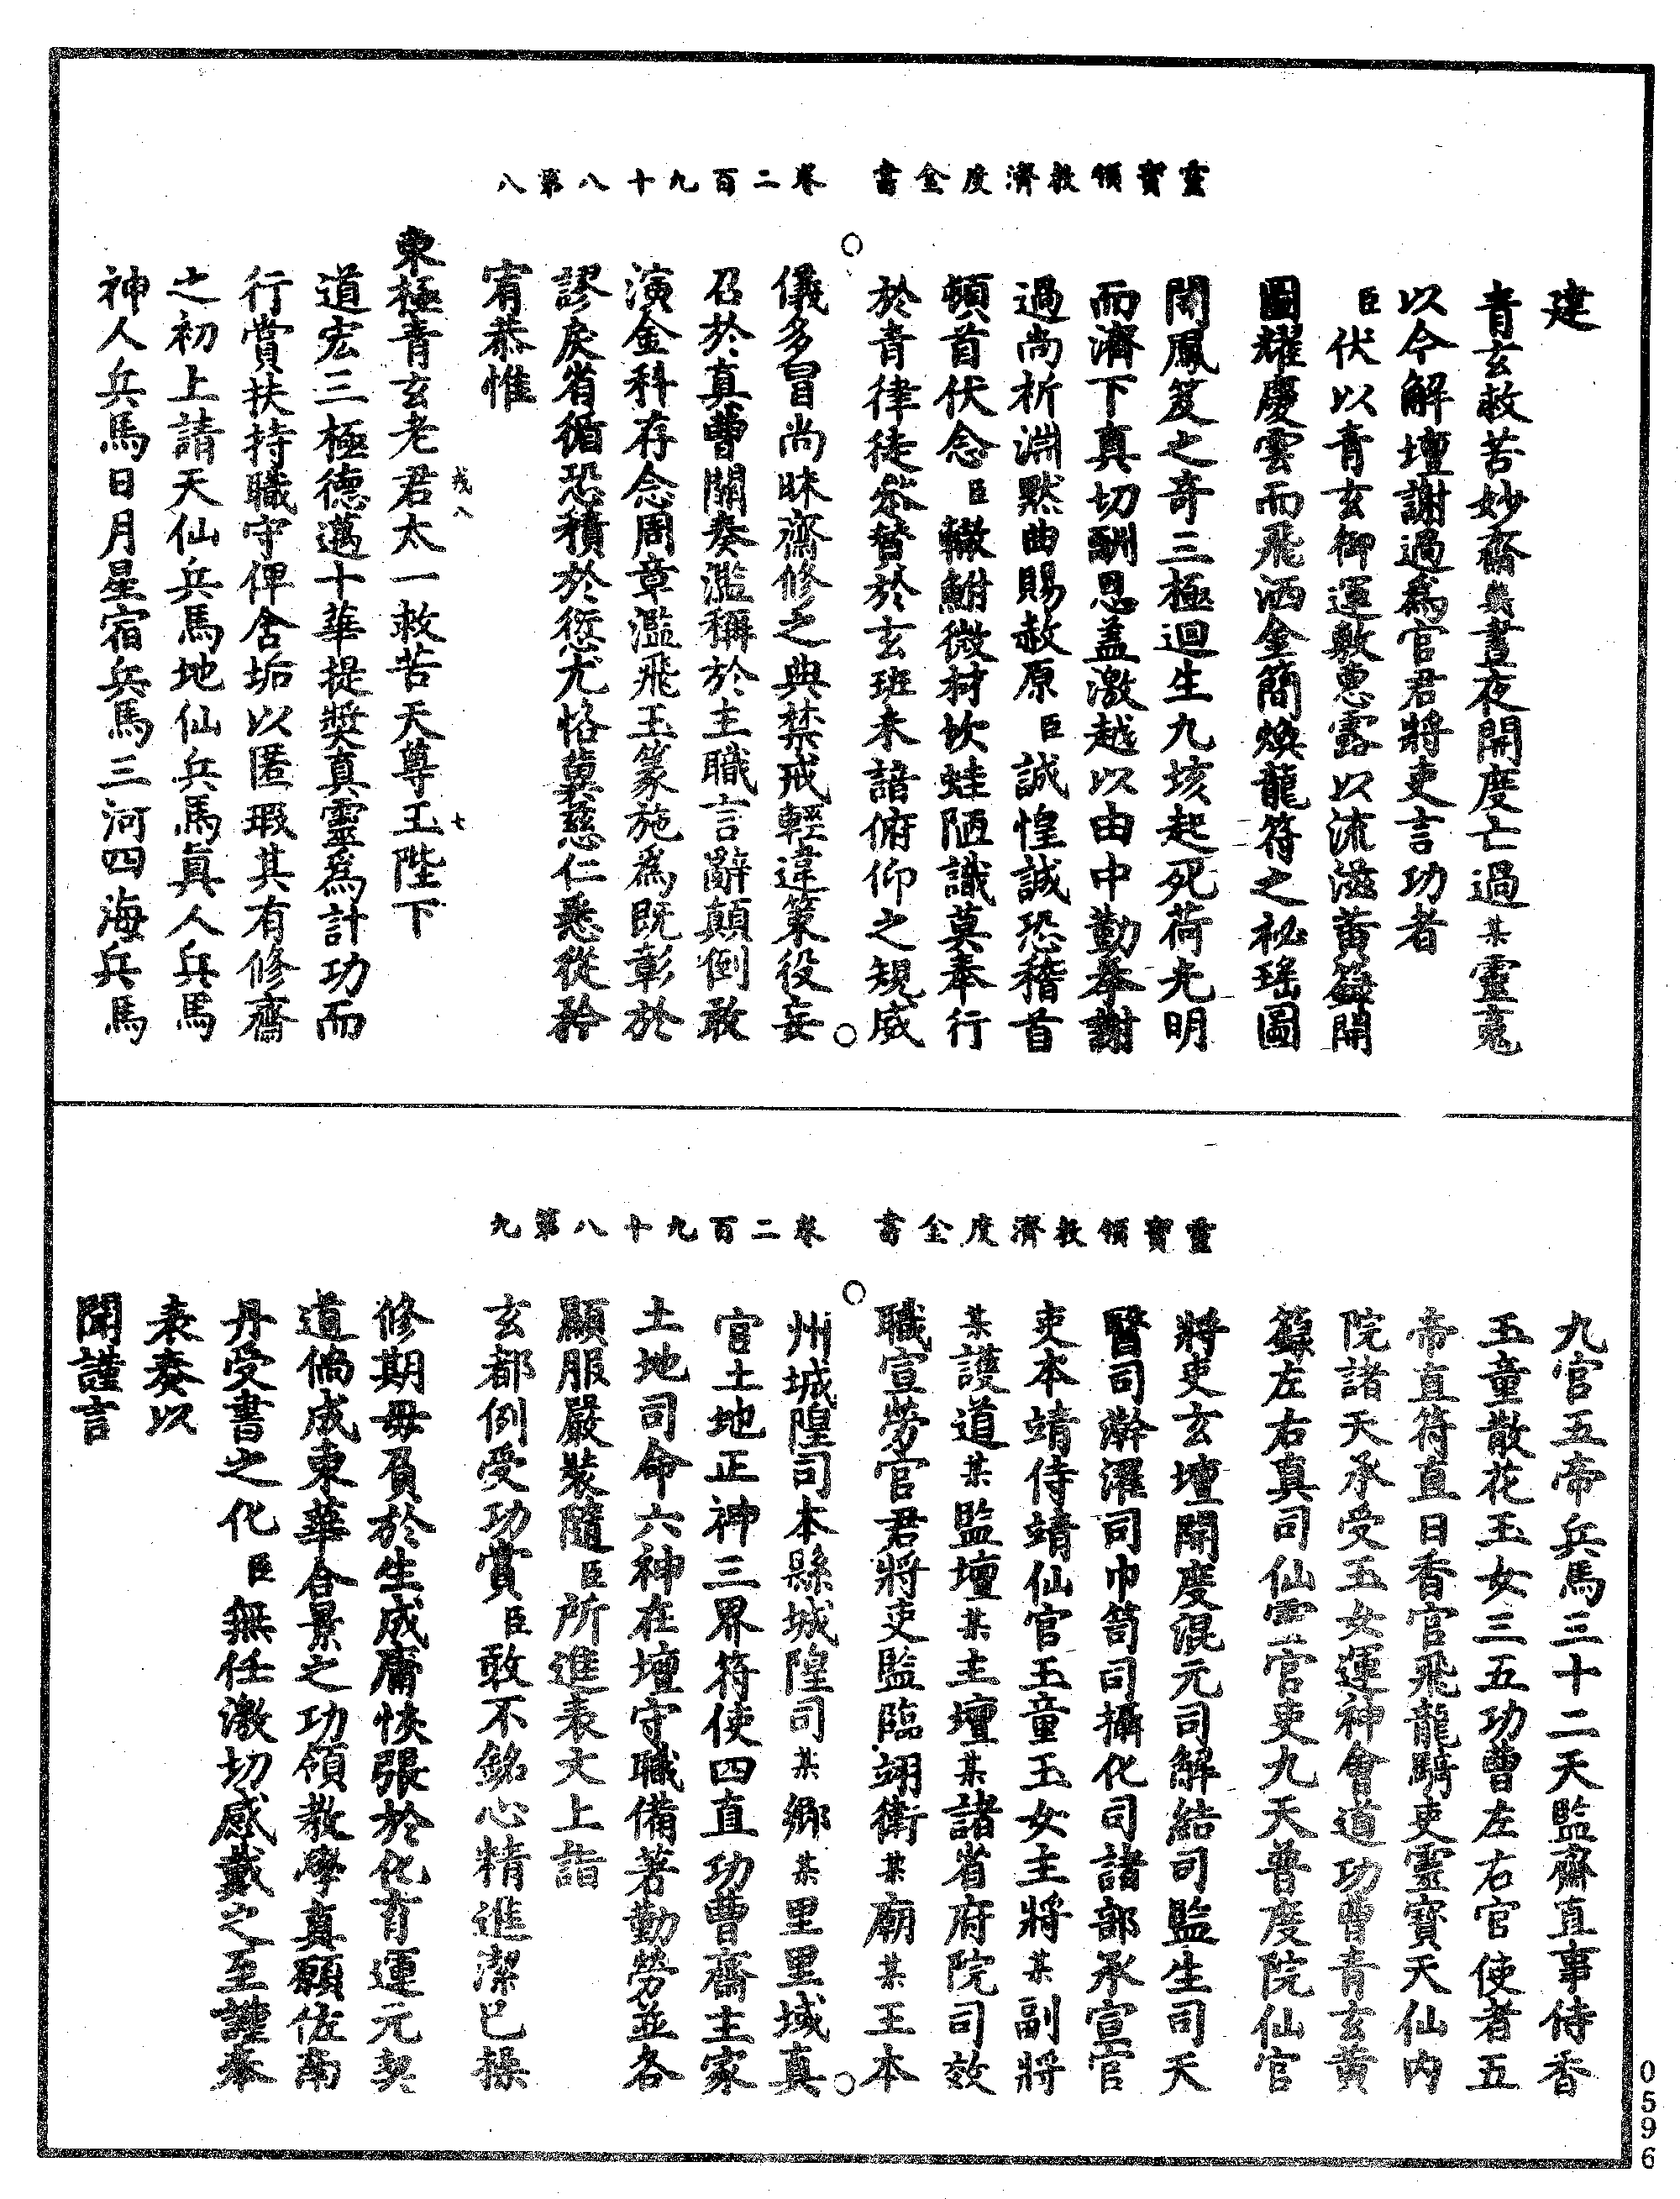 靈寶領教濟度金書　卷二百九十八第八
建
青玄救苦妙齋幾晝夜開度亡過某靈嵬
以今解壇謝過爲官君將吏言功者
臣伏以青玄御運敷惠露以流滋黄籙開
圖耀慶雲而飛洒金簡煥龍符之袐瑶圖
開鳳笈之竒三極迴生九垓起死荷光明
而濟下真切酬恩盖激越以由中勤拳謝
過尚祈淵黙曲賜赦原臣誠惶誠恐稽首
頓首伏念臣轍鮒微材坎蛙陋識莫奉行
於青律徒忝朁於玄班未諳俯仰之規威
儀多冒尚昧齋修之典禁戒輕違策役妄
召於真曹關奏濫稱於主職言辭顛倒敢
演金科存念周章濫飛玉篆施爲既彰於
謬戾省循恐積於愆尤恪冀慈仁悉從矜
宥恭惟
東極青玄老君太一救苦天尊玉陛下
道宏三極德邁十華提奬真靈爲計功而
行賞扶持職守俾含垢以匿瑕其有修齋
之初上請天仙兵馬地仙兵馬眞人兵馬
神人兵馬日月星宿兵馬三河四海兵馬
戎八
七
靈寶領教濟度金書　卷二百九十八第九
九官五帝兵馬三十二天監齋直事侍香
玉童散花玉女三五功曹左右官使者五
帝直符直日香官飛龍騎吏靈寳天仙内
院諸天承受玉女運神會道功曹青玄黄
籙左右真司仙靈官吏九天普度院仙官
將吏玄壇開度混元司解結司監生司天
醫司澣濯司巾笥司攝化司諸部承宣官
吏本靖侍靖仙官玉童玉女主將某副將
某護道某監壇某主壇某諸省府院司效
職宣勞官君將吏監臨翊衛某廟某王本
州城隍司本縣城隍司某鄉某里里域真
官土地正神三界符使四直功曹齋主家
土地司命六神在壇守職備著勤勞並各
顯服嚴裝隨臣所進表文上詣
玄都例受功賞臣敢不銘心精進潔已操
修期毋負於生成庸恢張於化育運元契
道倘成東華合景之功領教學真願佐南
丹受書之化臣無任激切感戴之至謹奉
表奏以
聞謹言
0596